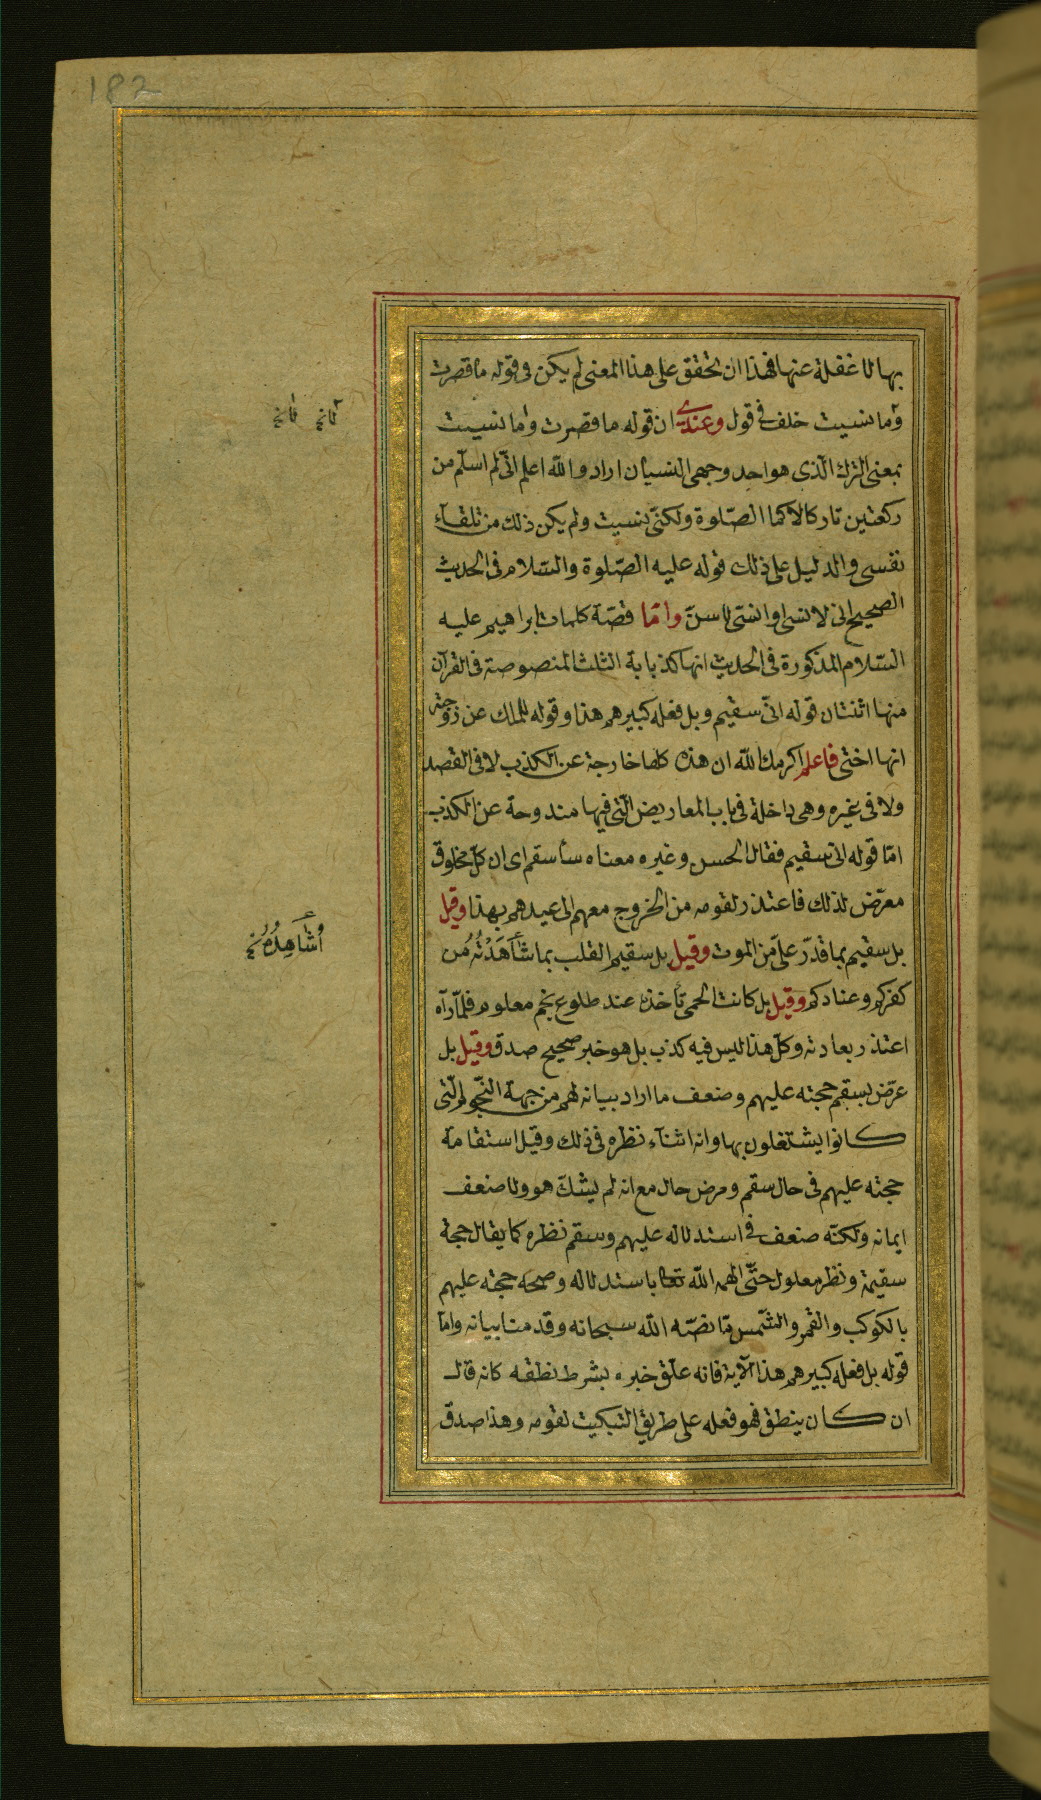 182
بها لا غفلة عنها فهذا ان تحقق على هذا المعنى لم يكن فى قوله ما قصرت
وما نسيت خلف فى قول وعندى ان قوله ما قصرت وما نسيت
بمعنى الترك الذى هو احد وجهى النسيان اراد والله اعلم انى لم اسلم من
ركعتين تاركا لاكمال الصّلوة ولكنى نسيت ولم يكن ذلك من تلقآء
نفسى والدليل على ذلك قوله عليه الصّلوة والسّلام فى الحديث
الصحيح انى لانسى او انسّى لاسنّ وامّا قصّة كلمات ابراهيم عليه
السّلام المذكورة فى الحديث انها كذباته الثلث المنصوصة فى القرآن
منها اثنتان قوله انّى سقيم وبل فعله كبيرهم هذا وقوله للملك عن زوجته
انها اختى فاعلم اكرمك الله ان هذه كلها خارجة عن الكذب لا فى القصد
ولا فى غيره وهى داخلة فى باب المعاريض الّتى فيها مندوحة عن الكذب
امّا قوله انى سقيم فقال الحسن وغيره معناه سأسقم اى ان كلّ مخلوق
معرّض لذلك فاعتذر لقومه من الخروج معهم الى عيدهم بهذا وقيل
بل سقيم بما قدّر علىّ من الموت وقيل بل سقيم القلب بما شاهدته من
كفركم وعنادكم وقيل بل كانت الحمى تأخذه عند طلوع نجم معلوم فلمّا رآه
اعتذر بعادته وكلّ هذا ليس فيه كذب بل هو خبر صحيح صدق وقيل بل
عرّض بسقم حجته عليهم وضعف ما اراد بيانه لهم من جهة النّجوم الّتى
كانوا يشتغلون بها وانه اثنآء نظره فى ذلك وقبل استقامة
حجته عليهم فى حال سقم ومرض حال مع انه لم يشكّ هو ولا ضعف
ايمانه ولكنّه ضعف فى استدلاله عليهم وسقم نظره كما يقال حجة
سقيمة ونظر معلول حتّى الهمه الله تعالى باستدلاله وصحة حجته عليهم
بالكوكب والقمر والشّمس ما نصّه الله سبحانه وقدمنا بيانه وامّا
قوله بل فعله كبيرهم هذا الآية فانه علّق خبره بشرط نطقه كانه قال
ان كان ينطق فهو فعله على طريق التبكيت لقومه وهذا صدق
اُشَاهِدُهُ